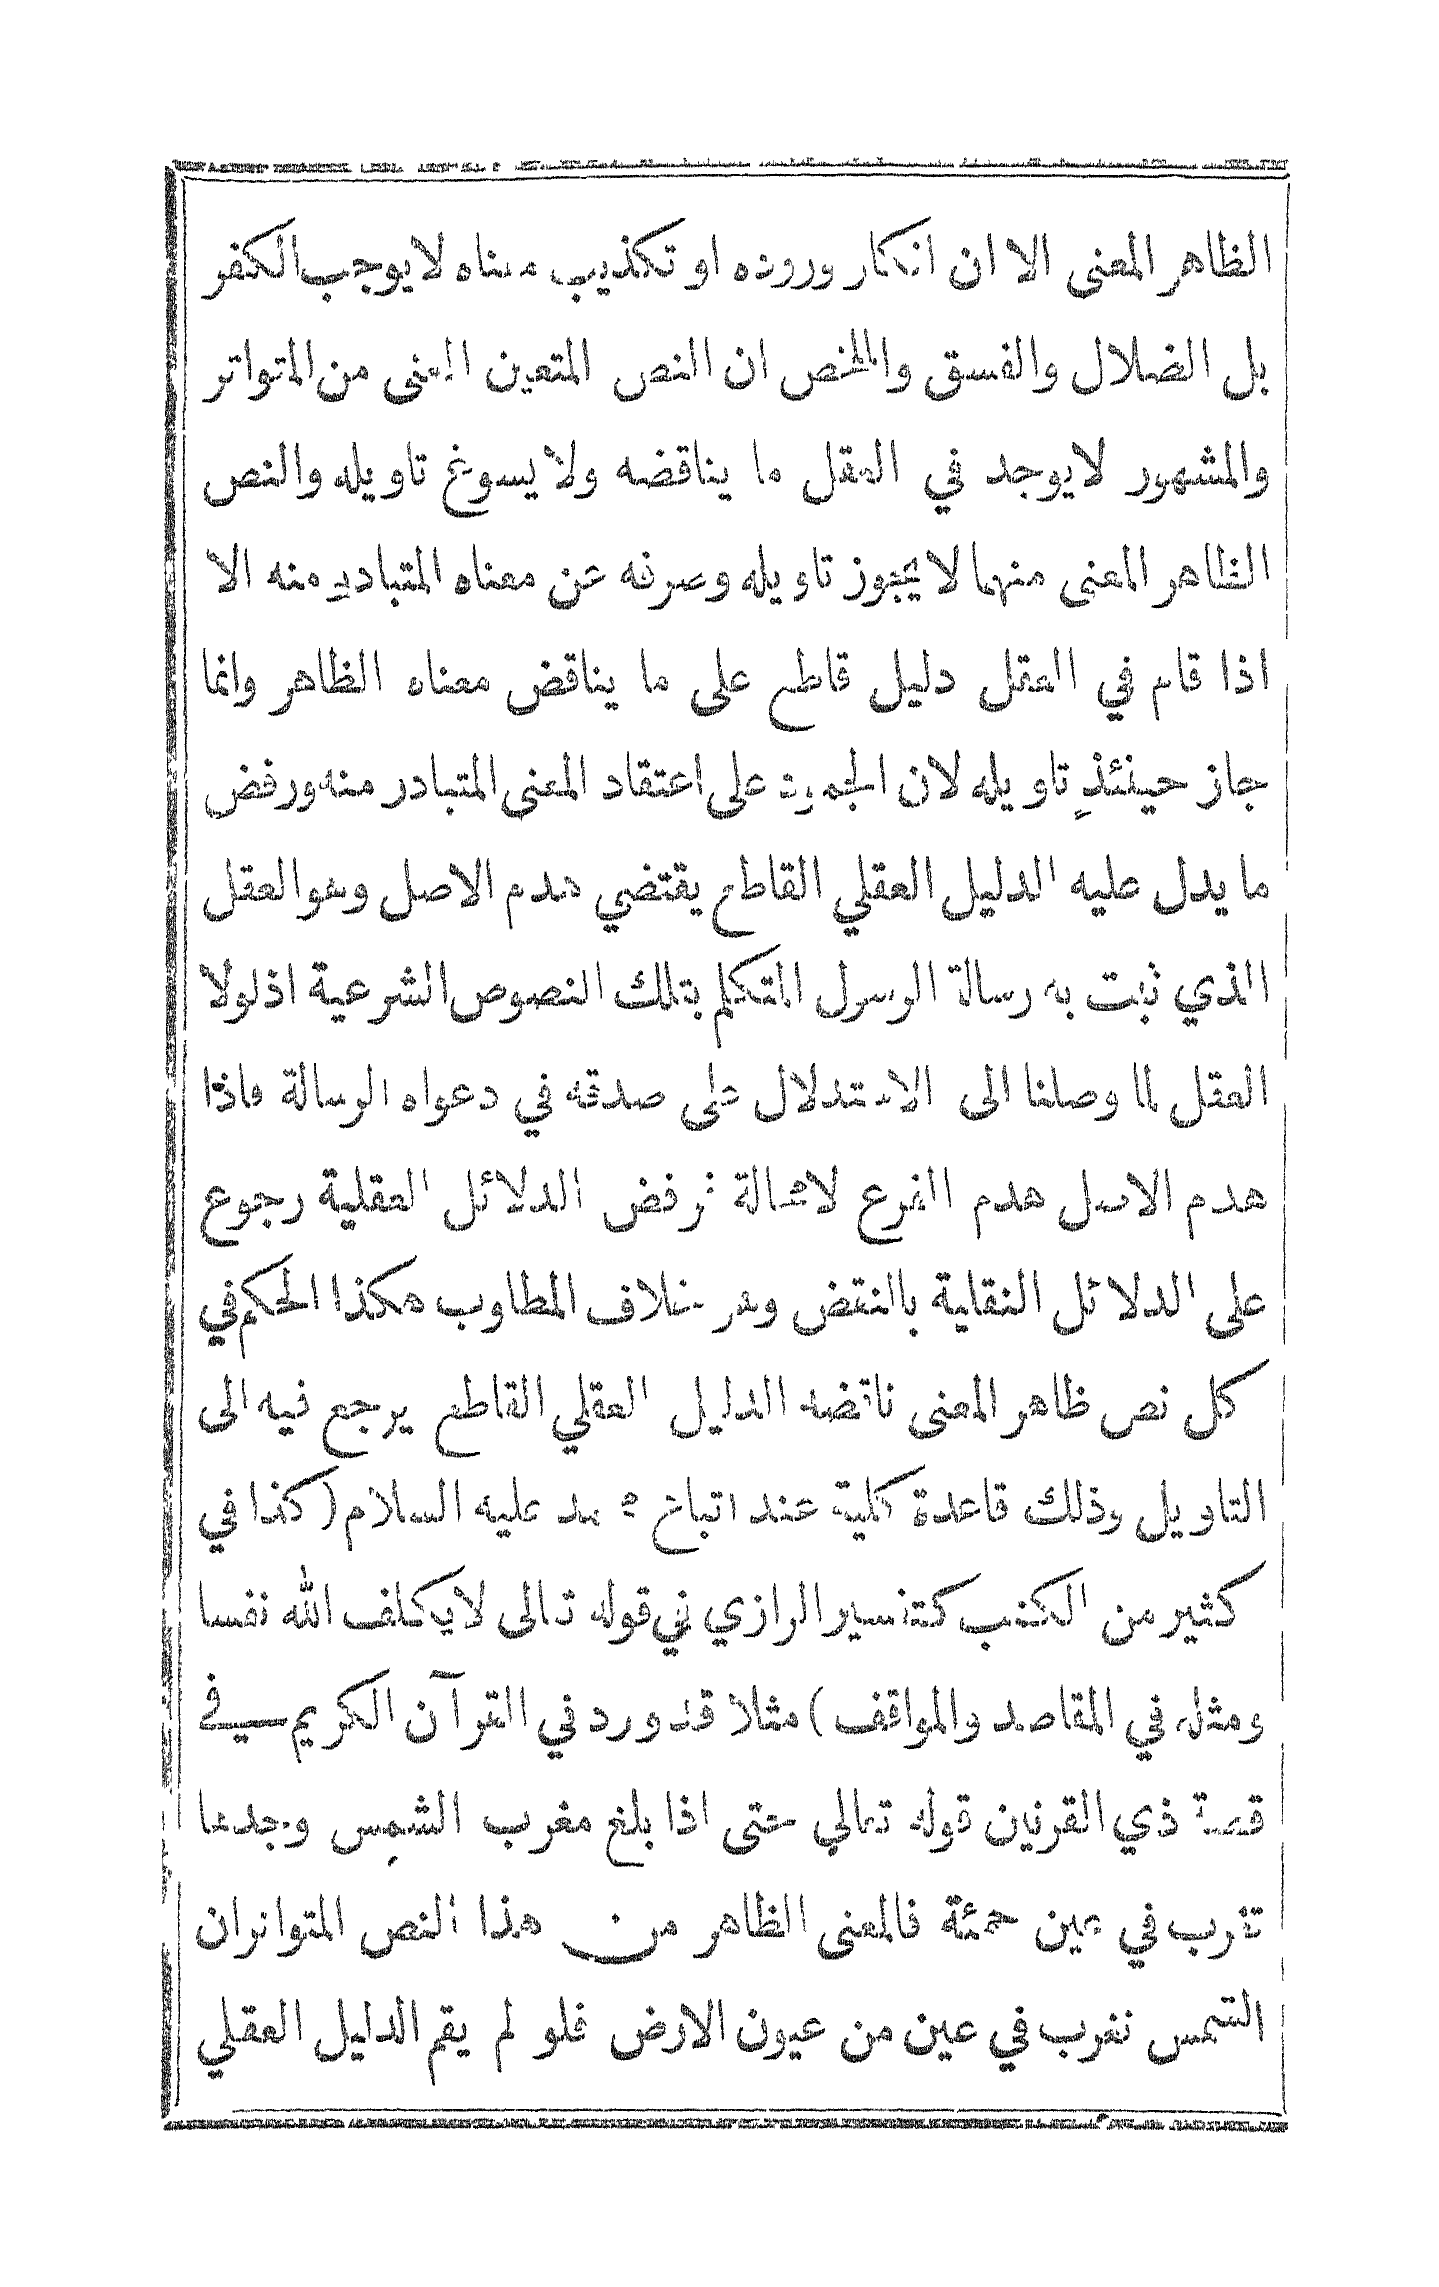 الظاهر المعنى الا ان انكار وروده او تكذيب معناه لا يوجب الكفر
بل الضلال والفسق والملخص ان النص المتعين المعنى من المتواتر
والمشهور لا يوجد في العقل ما يناقضه ولا يسوغ تاويله والنص
الظاهر المعنى منهما لا يجوز تاويله وصرفه عن معناه المتبادر منه الا
اذا قام في العقل دليل قاطع على ما يناقض معناه الظاهر وانما
جاز حينئذٍ تاويله لان الجمود على اعتقاد المعنى المتبادر منه ورفض
ما يدل عليه الدليل العقلي القاطع يقتضي هدم الاصل وهو العقل
الذي ثبت به رسالة الرسول المتكلم بتلك النصوص الشرعية اذ لولا
العقل لما وصلنا الى الاستدلال على صدقه في دعواه الرسالة فاذا
هدم الاصل هدم الفرع لا محالة فرفض الدلائل العقلية رجوع
على الدلائل النقلية بالنقض وهو خلاف المطلوب هكذا الحكم في
كل نص ظاهر المعنى ناقضه الدليل العقلي القاطع يرجع فيه الى
التاويل وذلك قاعدة كلية عند اتباع محمد عليه السلام (كذا في
كثير من الكتب كتفسير الرازي في قوله تعالى لا يكلف الله نفسا
ومثله في المقاصد والمواقف) مثلا قد ورد في القرآن الكريم في
قصة ذي القرنين قوله تعالى حتى اذا بلغ مغرب الشمس وجدها
تغرب في عين حمئة فالمعنى الظاهر من هذا النص المتواتر ان
الشمس تغرب في عين من عيون الارض فلو لم يقم الدليل العقلي